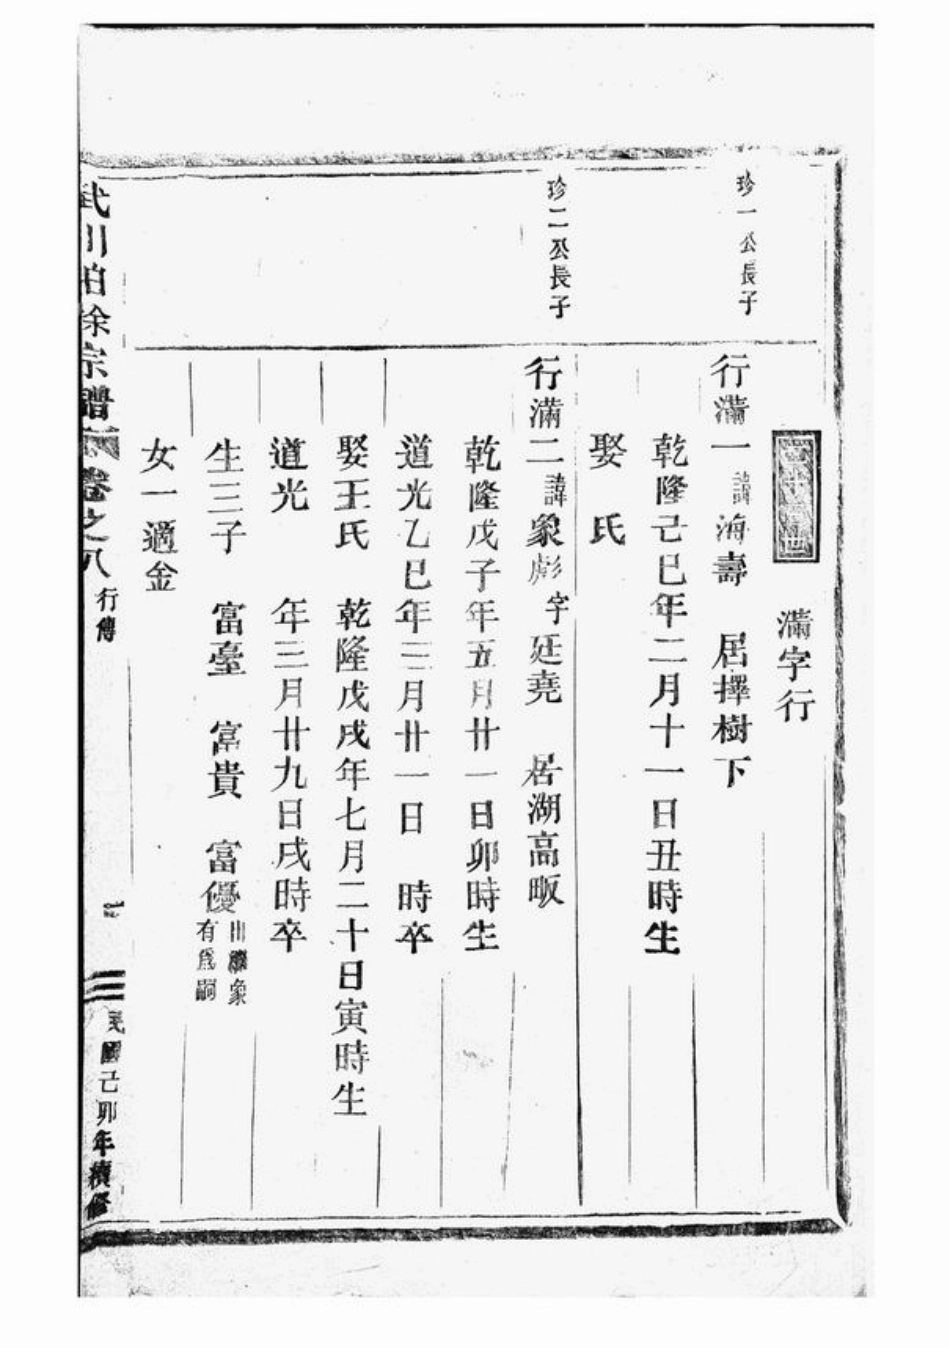 滿字行
珍一公長子
行滿一諱海壽 居擇樹下
乾隆己巳年二月十一日丑時生
娶 氏
珍二公長子
行滿二諱象彪字廷堯 居湖高畈
乾隆戊子年五月廿一日卯時生
道光乙巳年三月廿一日 時卒
娶王氏 乾隆戊戌年七月二十日寅時生
道光 年三月廿九日戌時卒
生三子 富臺 富貴 富優出繼象有爲嗣
女一適金
武川柏徐宗譜 卷之八 行傳
民國己卯年續修